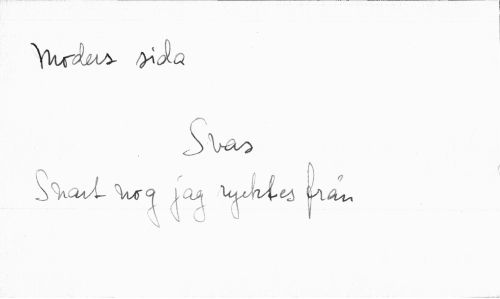 Moders sida
Svas
Snart nog jag rycktes från